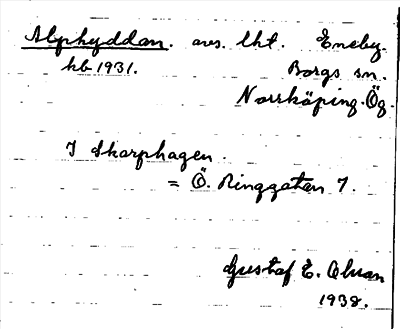 Alphyddan. avs. lht. Eneby.
kb 1931. Borgs sn.
Norrköping. Ög.
I Skarphagen.
= Ö. Ringgatan 7.
Gustaf E. Olsson
1938.